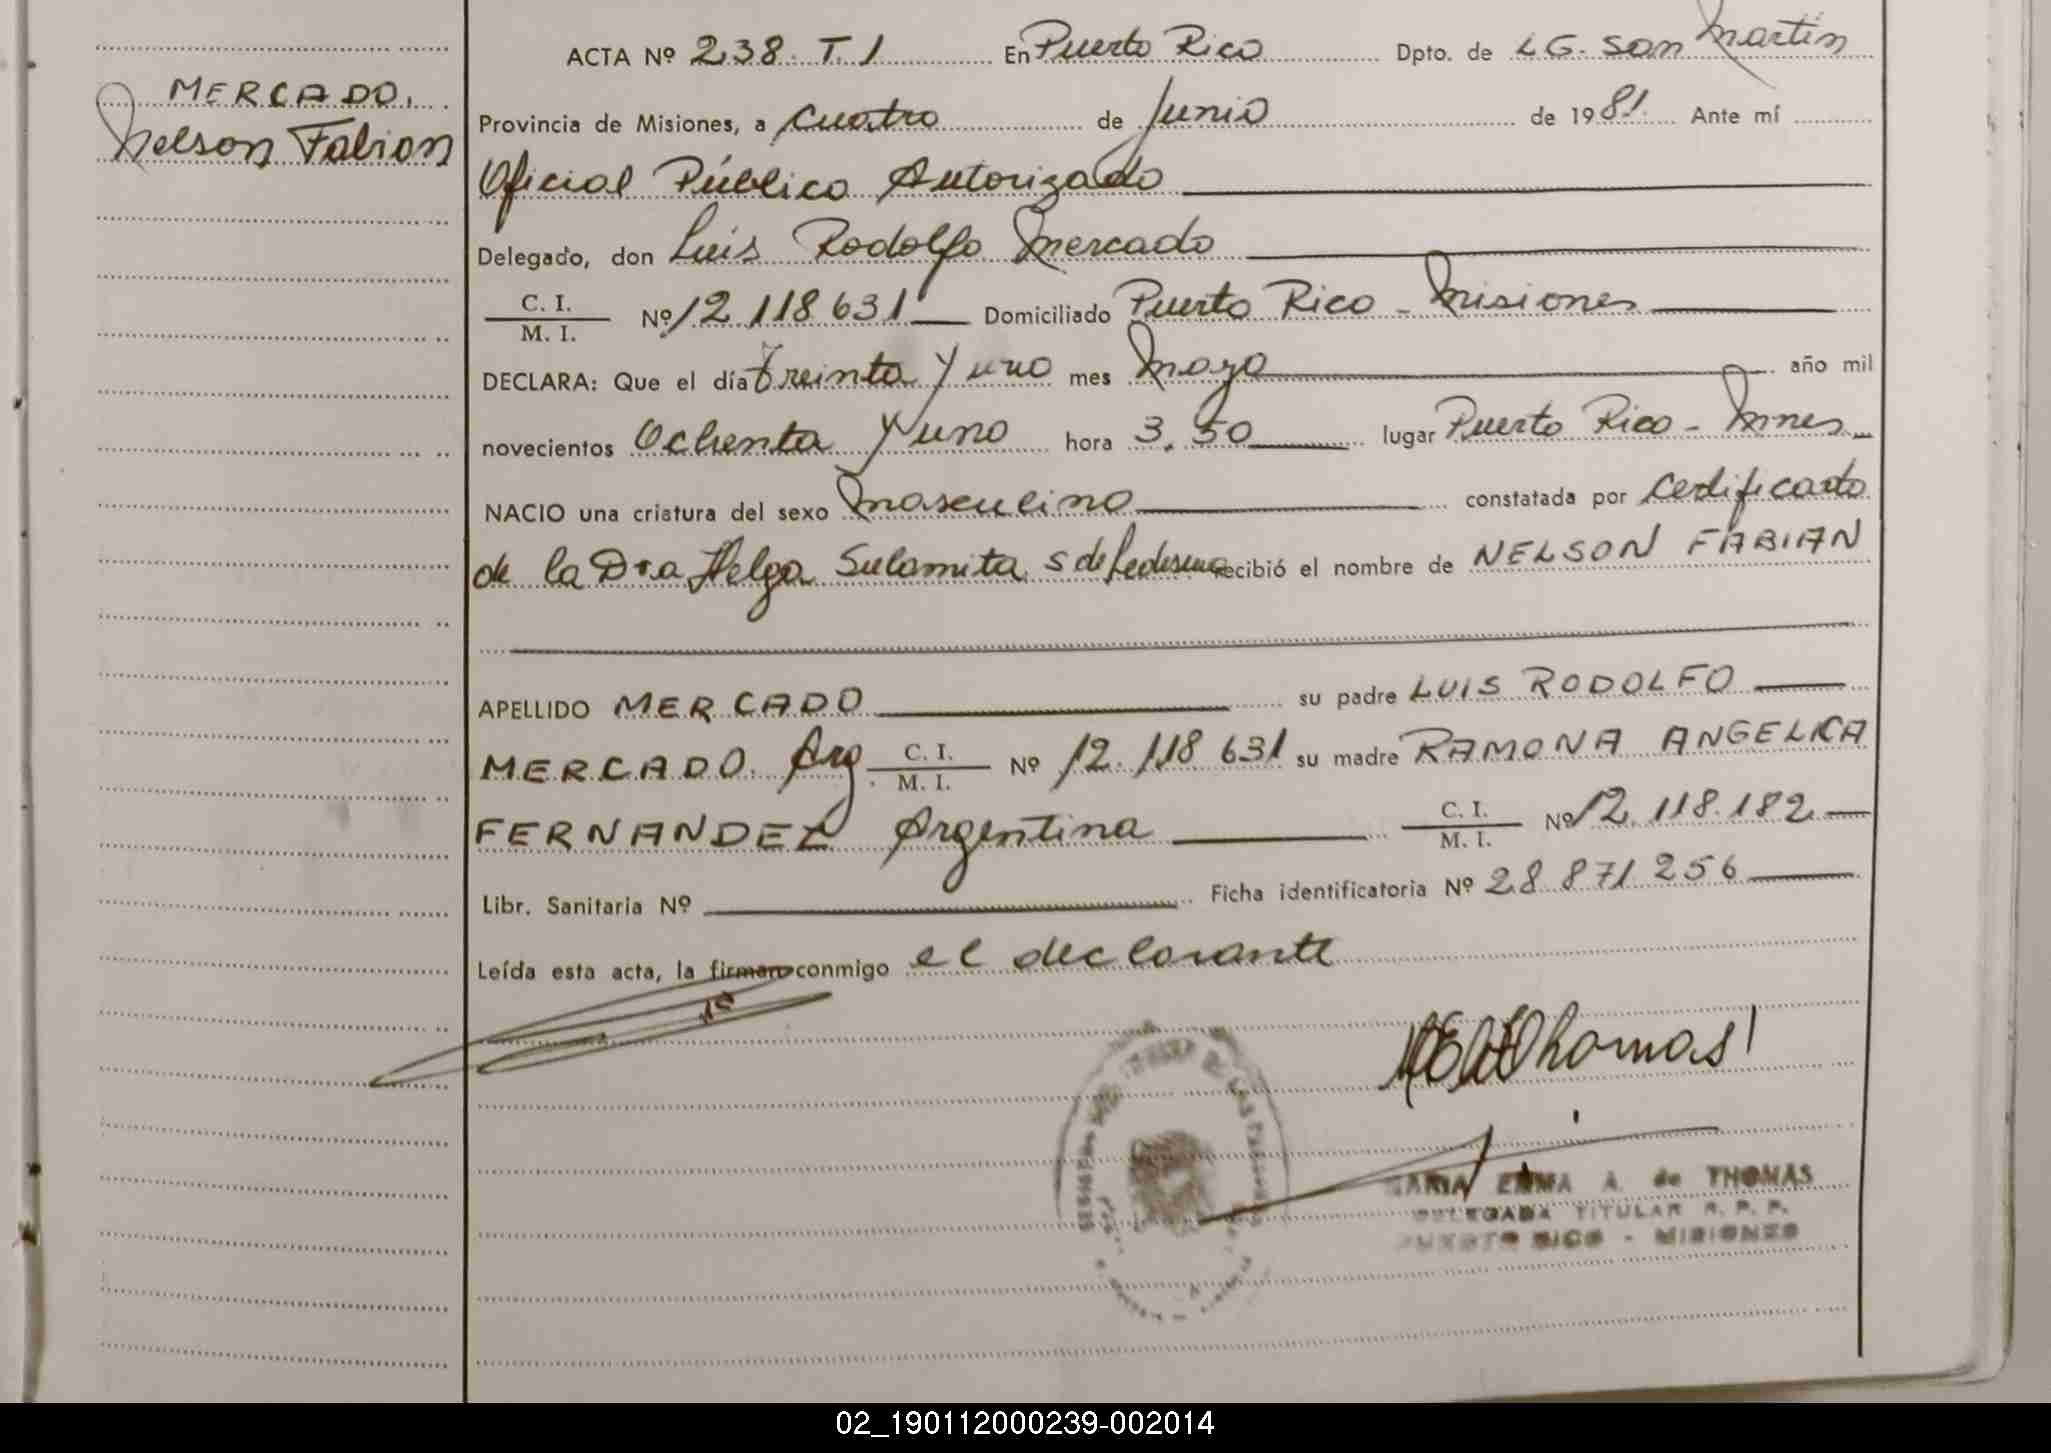 MERCADO.
Nelson Fabian
ACTA Nº 238. T. 1 En Puerto Rico Dpto. de L G. San Martín
Provincia de Misiones, a cuatro de Junio de 1981. Ante mí
Oficial Público Autorizado
Delegado, don Luis Rodolfo Mercado
C. I. / M. I. Nº 12.118.631 Domiciliado Puerto Rico - Misiones
DECLARA: Que el día treinta y uno mes Mayo año mil
novecientos Ochenta y uno hora 3.50 lugar Puerto Rico - Mnes
NACIO una criatura del sexo Masculino constatada por Certificado
de la Dra Helga Sulamita S de Ledesma recibió el nombre de NELSON FABIAN
APELLIDO MERCADO su padre LUIS RODOLFO
MERCADO. Arg C. I. / M. I. Nº 12.118 631 su madre RAMONA ANGELICA
FERNANDEZ Argentina C. I. / M. I. Nº 12.118.182
Libr. Sanitaria Nº Ficha identificatoria Nº 28 871 256
Leída esta acta, la firman conmigo el declarante
Thomas
MARIA EMMA A. de THOMAS
DELEGADA TITULAR R. P. P.
PUERTO RICO - MISIONES
02_190112000239-002014